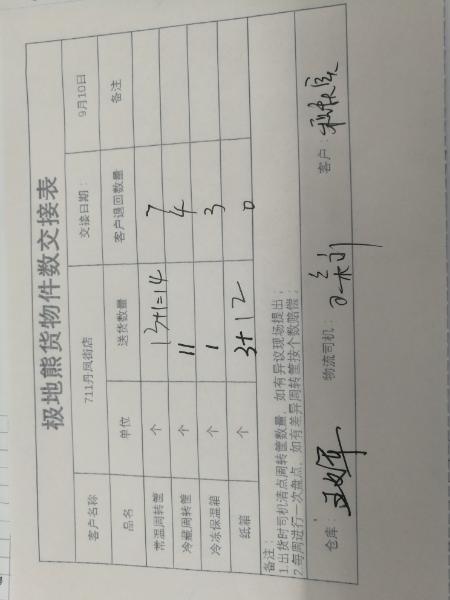 极地熊货物件数交接表
客户名称 711丹凤街店 交接日期： 9月10日
品名 单位 送货数量 客户退回数量 备注
常温周转筐 个 13+1=14 7
冷藏周转筐 个 11 4
冷冻保温箱 个 1 3
纸箱 个 3+12 0
备注：
1.出货时司机清点周转筐数量，如有异议现场提出；
2.每周进行一次盘点，如有差异周转筐按个数赔偿；
仓库： 物流司机： 客户：